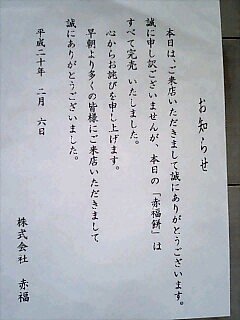 お知らせ
本日は、ご来店いただきまして誠にありがとうございます。
誠に申し訳ございませんが、本日の「赤福餅」は
すべて完売 いたしました。
心からお詫びを申し上げます。
早朝より多くの皆様にご来店いただきまして
誠にありがとうございました。
平成二十年 二月 六日
株式会社 赤福